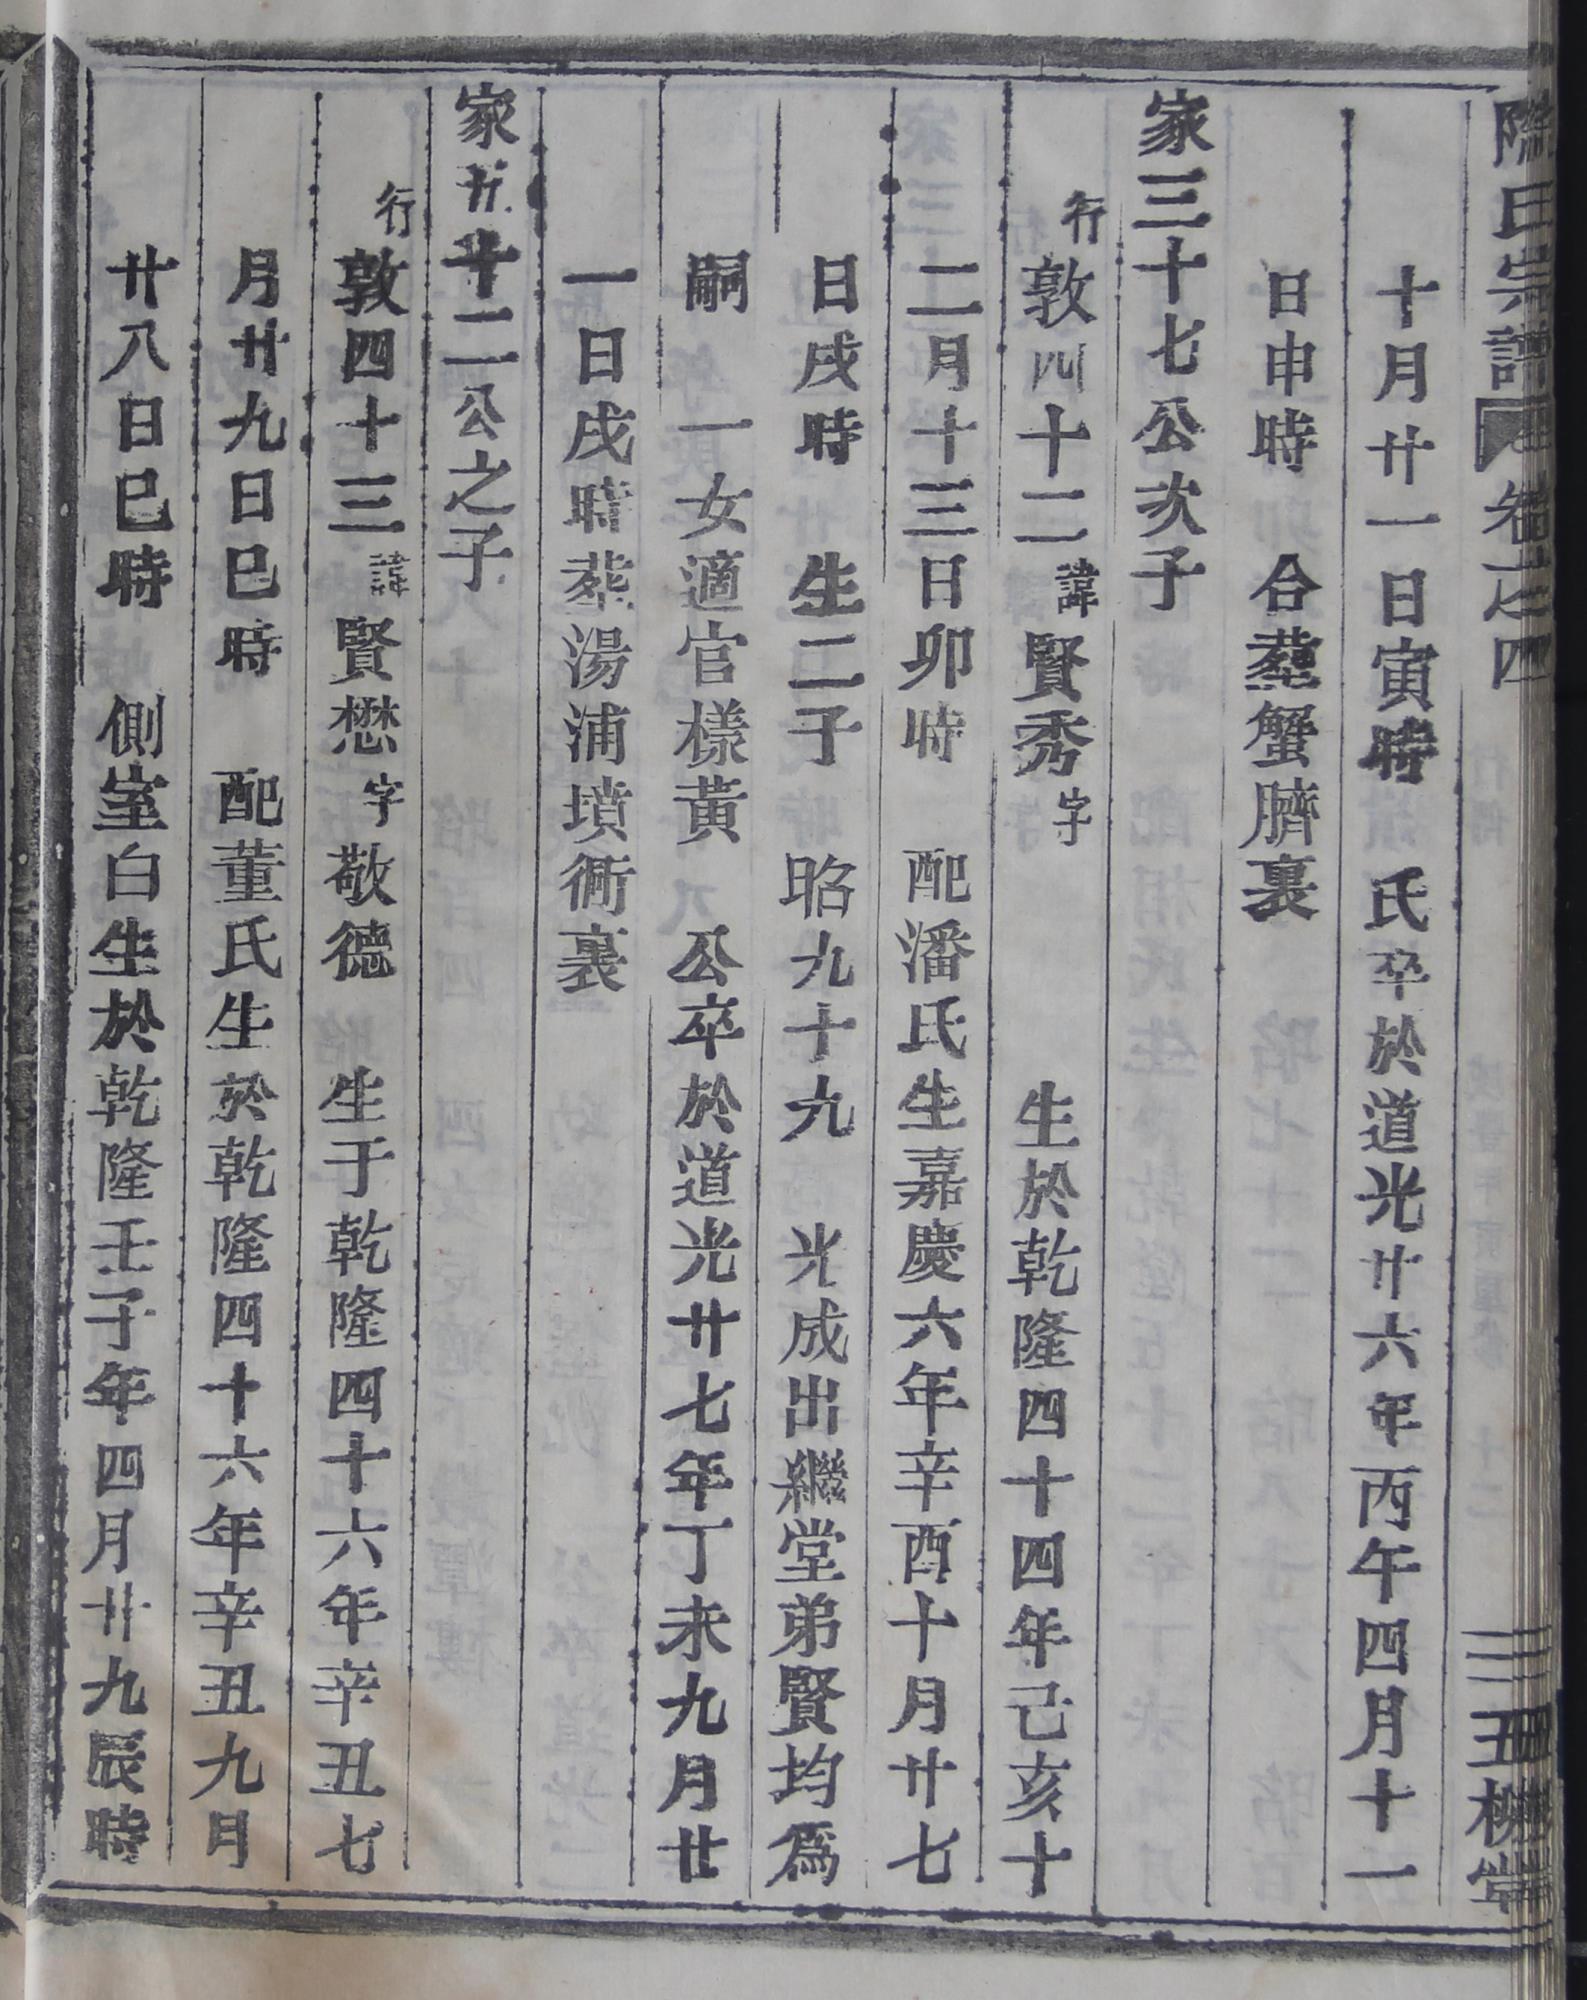 陳氏宗譜 卷之四 三 五桂堂
十月廿一日寅時 氏卒於道光廿六年丙午四月十一
日申時 合塟蟹臍裏
家三十七公次子
行敦四十二諱賢秀字 生於乾隆四十四年己亥十
二月十三日卯時 配潘氏生嘉慶六年辛酉十月廿七
日戌時 生二子 昭九十九 光成出繼堂弟賢均爲
嗣 一女適官樣黃 公卒於道光廿七年丁未九月廿
一日戌時葬湯浦墳衕裏
家十二公之子
行敦四十三諱賢懋字敬德 生于乾隆四十六年辛丑七
月廿九日巳時 配董氏生於乾隆四十六年辛丑九月
廿八日巳時 側室白生於乾隆壬子年四月廿九辰時